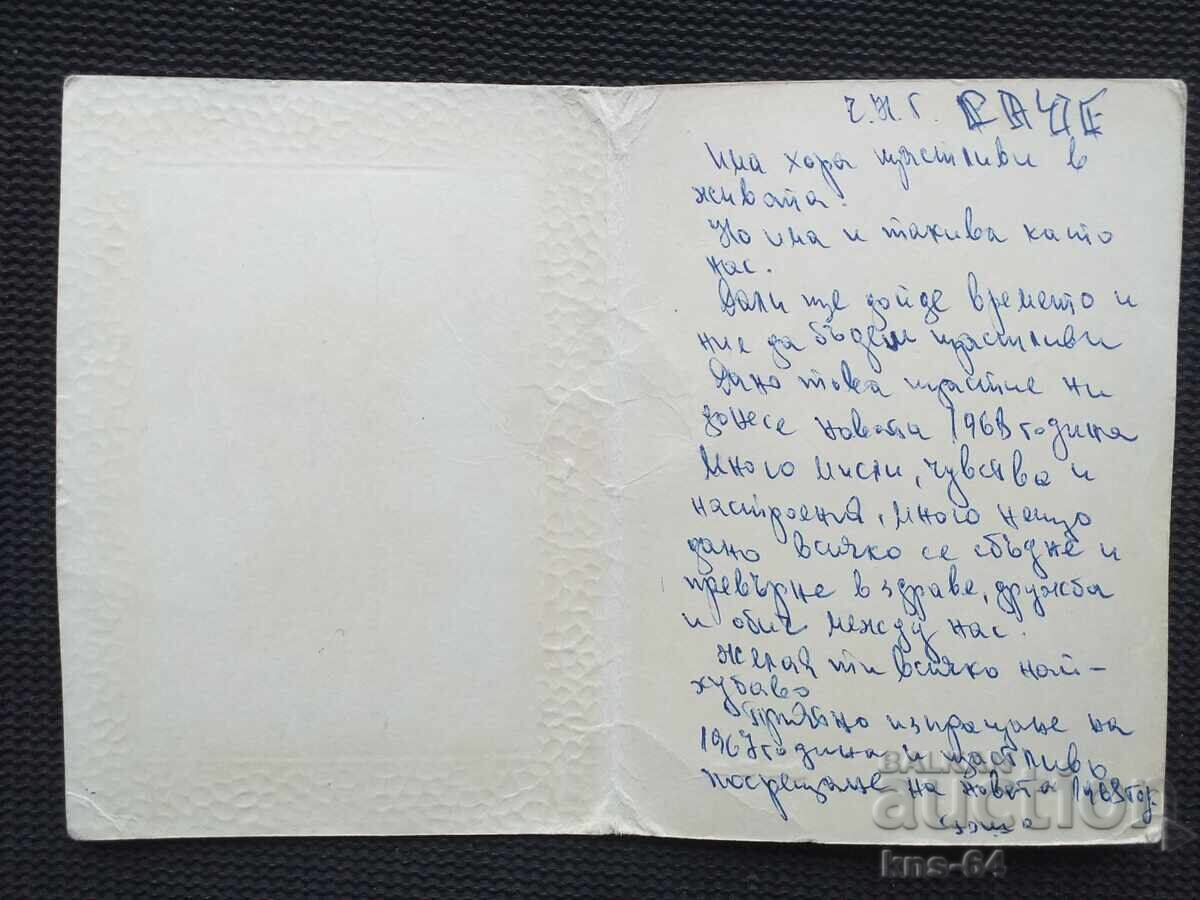 Ч.Н.Г. РАЧЕ
Има хора щастливи в
живота.
Но има и такива като
нас.
Дали ще дойде времето и
ние да бъдем щастливи
Дано това щастие ни
донесе новата 1968 година
Много мисли, чувства и
настроения, много нещо
дано всичко се сбъдне и
превърне в здраве, дружба
и обич между нас.
Желая ти всичко най-
хубаво
Приятно изпращане на
1967 година и щастливо
посрещане на новата 1968 год.
BALKAN
auction
kns-64